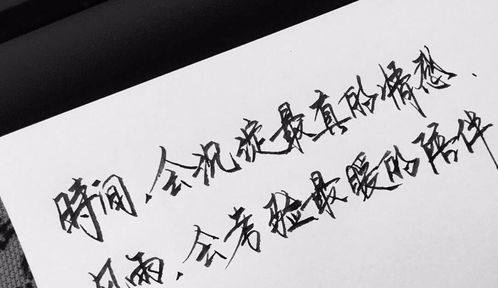 時间,会沉淀最真的情感.
风雨,会考验最暖的陪伴